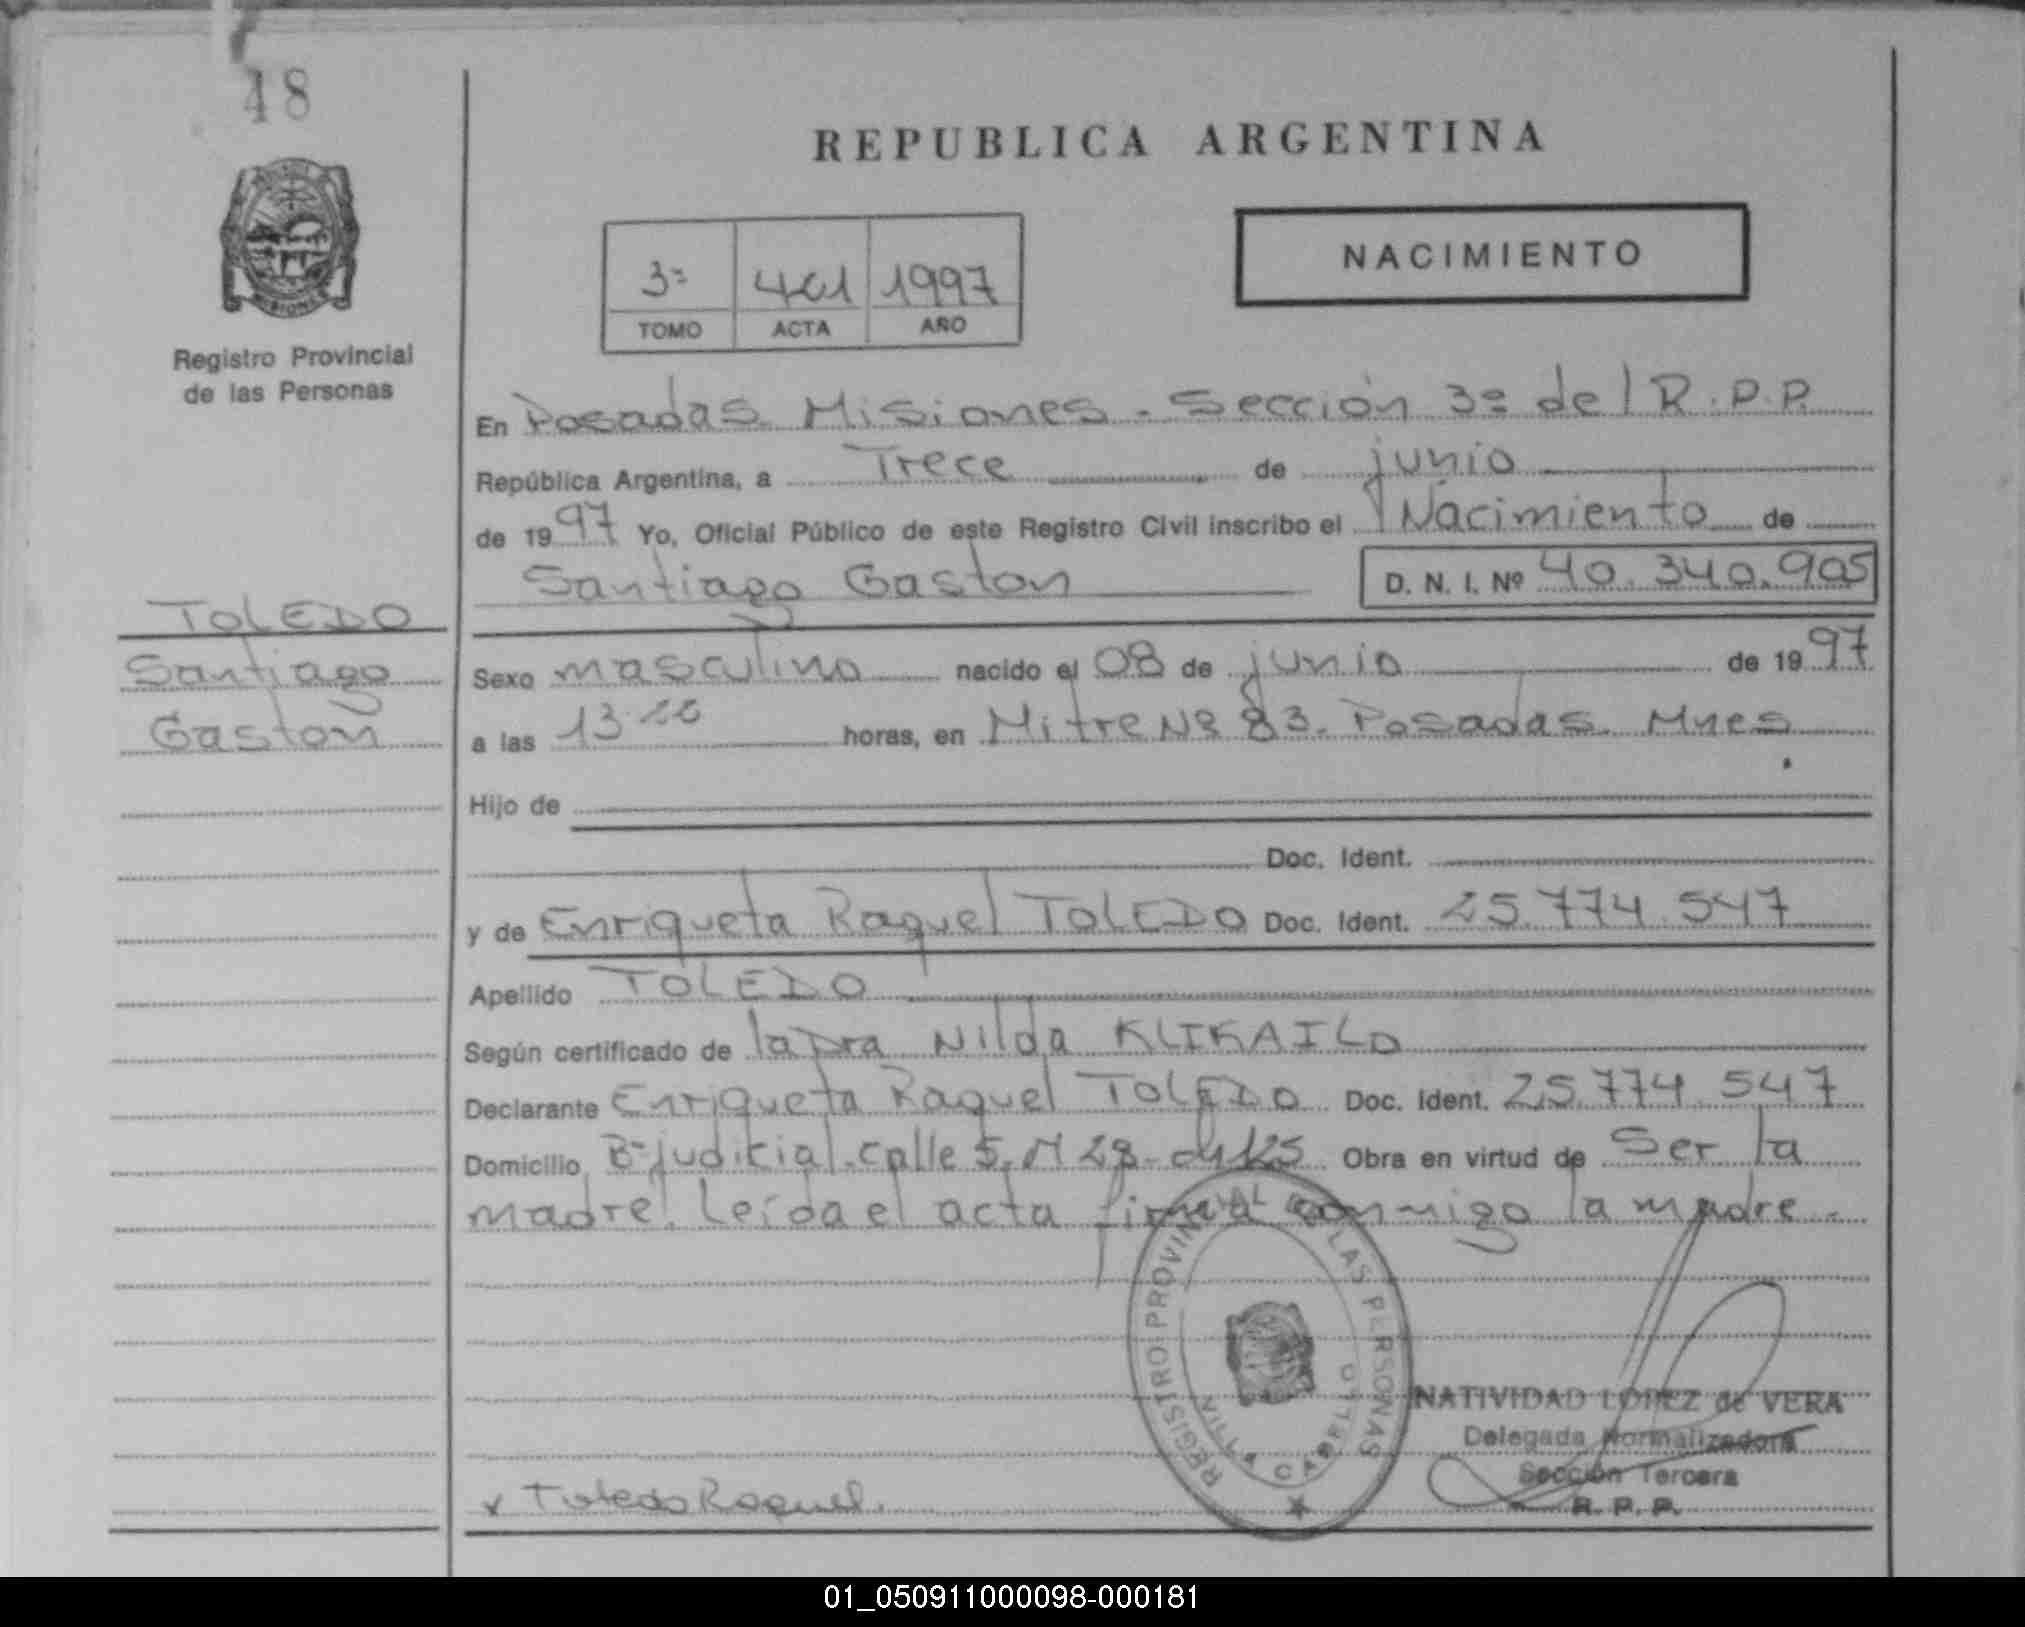 48
REPUBLICA ARGENTINA
NACIMIENTO
3ª 401 1997
TOMO ACTA AÑO
Registro Provincial
de las Personas
En Posadas Misiones - Sección 3ª del R.P.P.
República Argentina, a Trece de junio
de 1997 Yo, Oficial Público de este Registro Civil inscribo el Nacimiento de
Santiago Gaston D. N. I. Nº 40.340.905
TOLEDO
Santiago
Gaston
Sexo masculino nacido el 08 de junio de 1997
a las 13 horas, en Mitre Nº 83. Posadas. Mnes.
Hijo de
Doc. Ident.
y de Enriqueta Raquel TOLEDO Doc. Ident. 25.774.547
Apellido TOLEDO
Según certificado de la Dra Nilda
Declarante Enriqueta Raquel TOLEDO Doc. Ident. 25.774.547
Domicilio Bº judicial. calle 5. M 28 Obra en virtud de Ser la
madre. Leída el acta firma conmigo la madre.
REGISTRO PROVINCIAL DE LAS PERSONAS
VILLA CABELLO
NATIVIDAD LOPEZ de VERA
Delegada Normalizadora
Sección Tercera
R. P. P.
x Toledo Raquel.
01_050911000098-000181